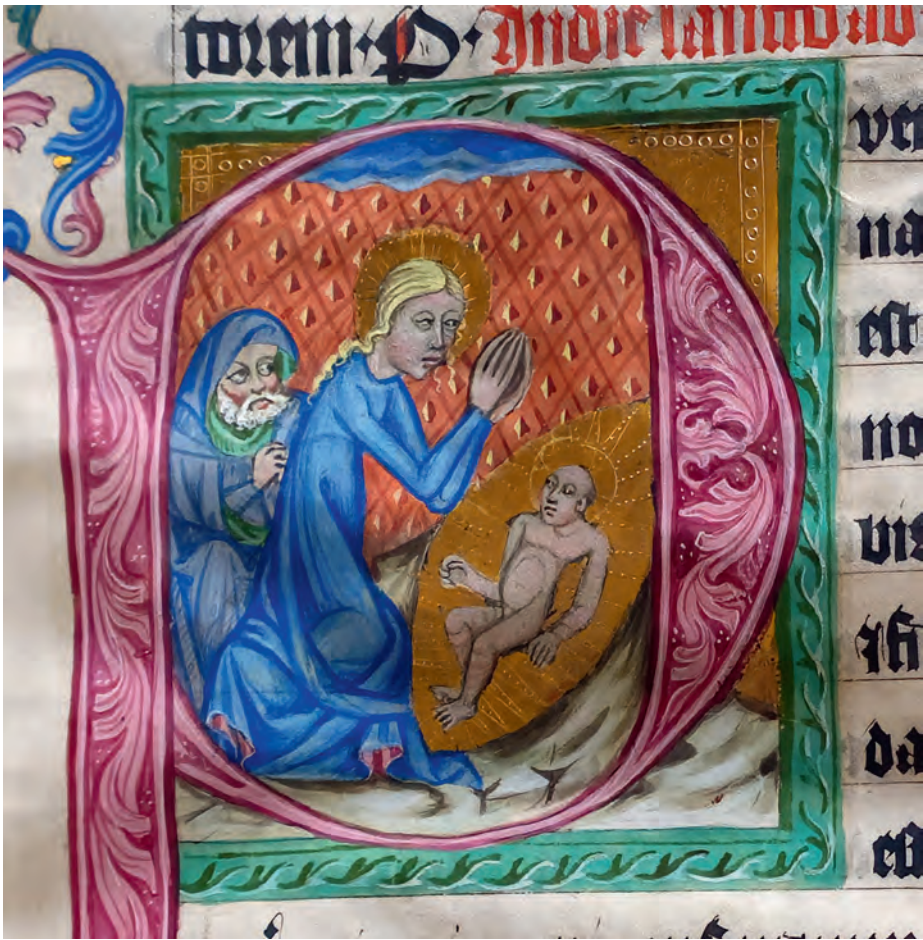 torem · P · In die sancto ad
P ver
na
est
no
bis
⁊ fi
da
est